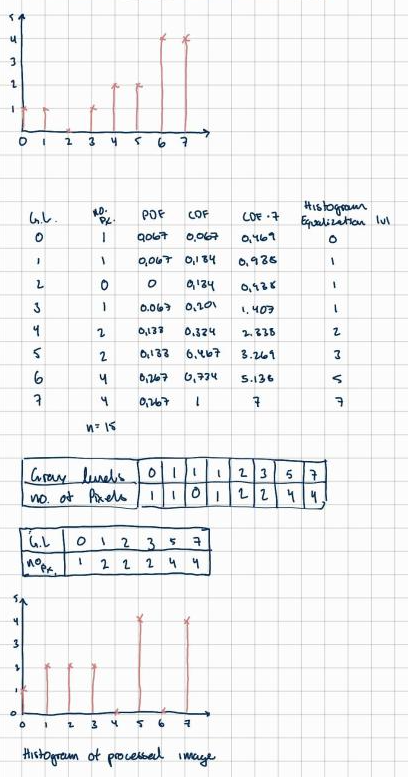 5
4
3
2
1
0 1 2 3 4 5 6 7
G.L. no. Px. PDF CDF CDF · 7 Histogram Equalization lvl
0 1 0,067 0,067 0,469 0
1 1 0,067 0,134 0,938 1
2 0 0 0,134 0,938 1
3 1 0.067 0,201 1.407 1
4 2 0,133 0,334 2.338 2
5 2 0,133 0,467 3.269 3
6 4 0,267 0,734 5.138 5
7 4 0,267 1 7 7
n = 15
Gray levels 0 1 1 1 2 3 5 7
no. of Pixels 1 1 0 1 2 2 4 4
G.L 0 1 2 3 5 7
no Px. 1 2 2 2 4 4
5
4
3
2
1
0
0 1 2 3 4 5 6 7
Histogram of processed image